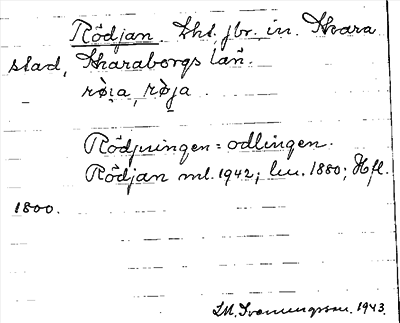 Rödjan. Lht. jbr. in. Skara
stad, Skaraborgs län.
rø̀i̯a, rø̀ja
Rödjningen = odlingen.
Rödjan ml. 1942; lm. 1880; Hfl.
1800.
1943.